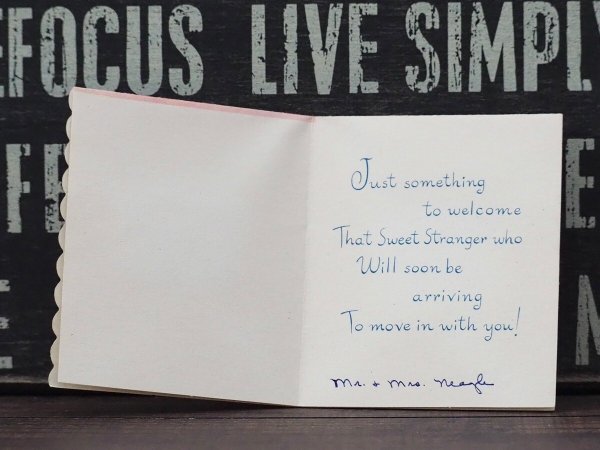 EFOCUS LIVE SIMPLY
Just something
to welcome
That Sweet Stranger who
Will soon be
arriving
To move in with you!
Mr. + Mrs. Neagle